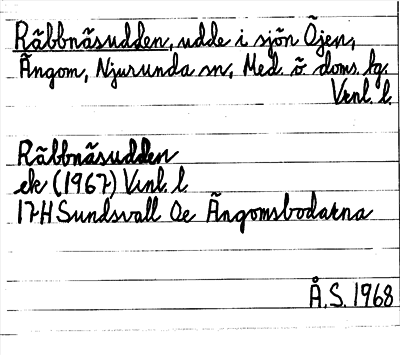 Räbbnäsudden, udde i sjön Öjen,
Ängom, Njurunda sn, Med. ö. doms. bg.
Vnl. l.
Räbbnäsudden
ek (1967) Vnl. l
17H Sundsvall Oe Ängomsbodarna
Å.S. 1968